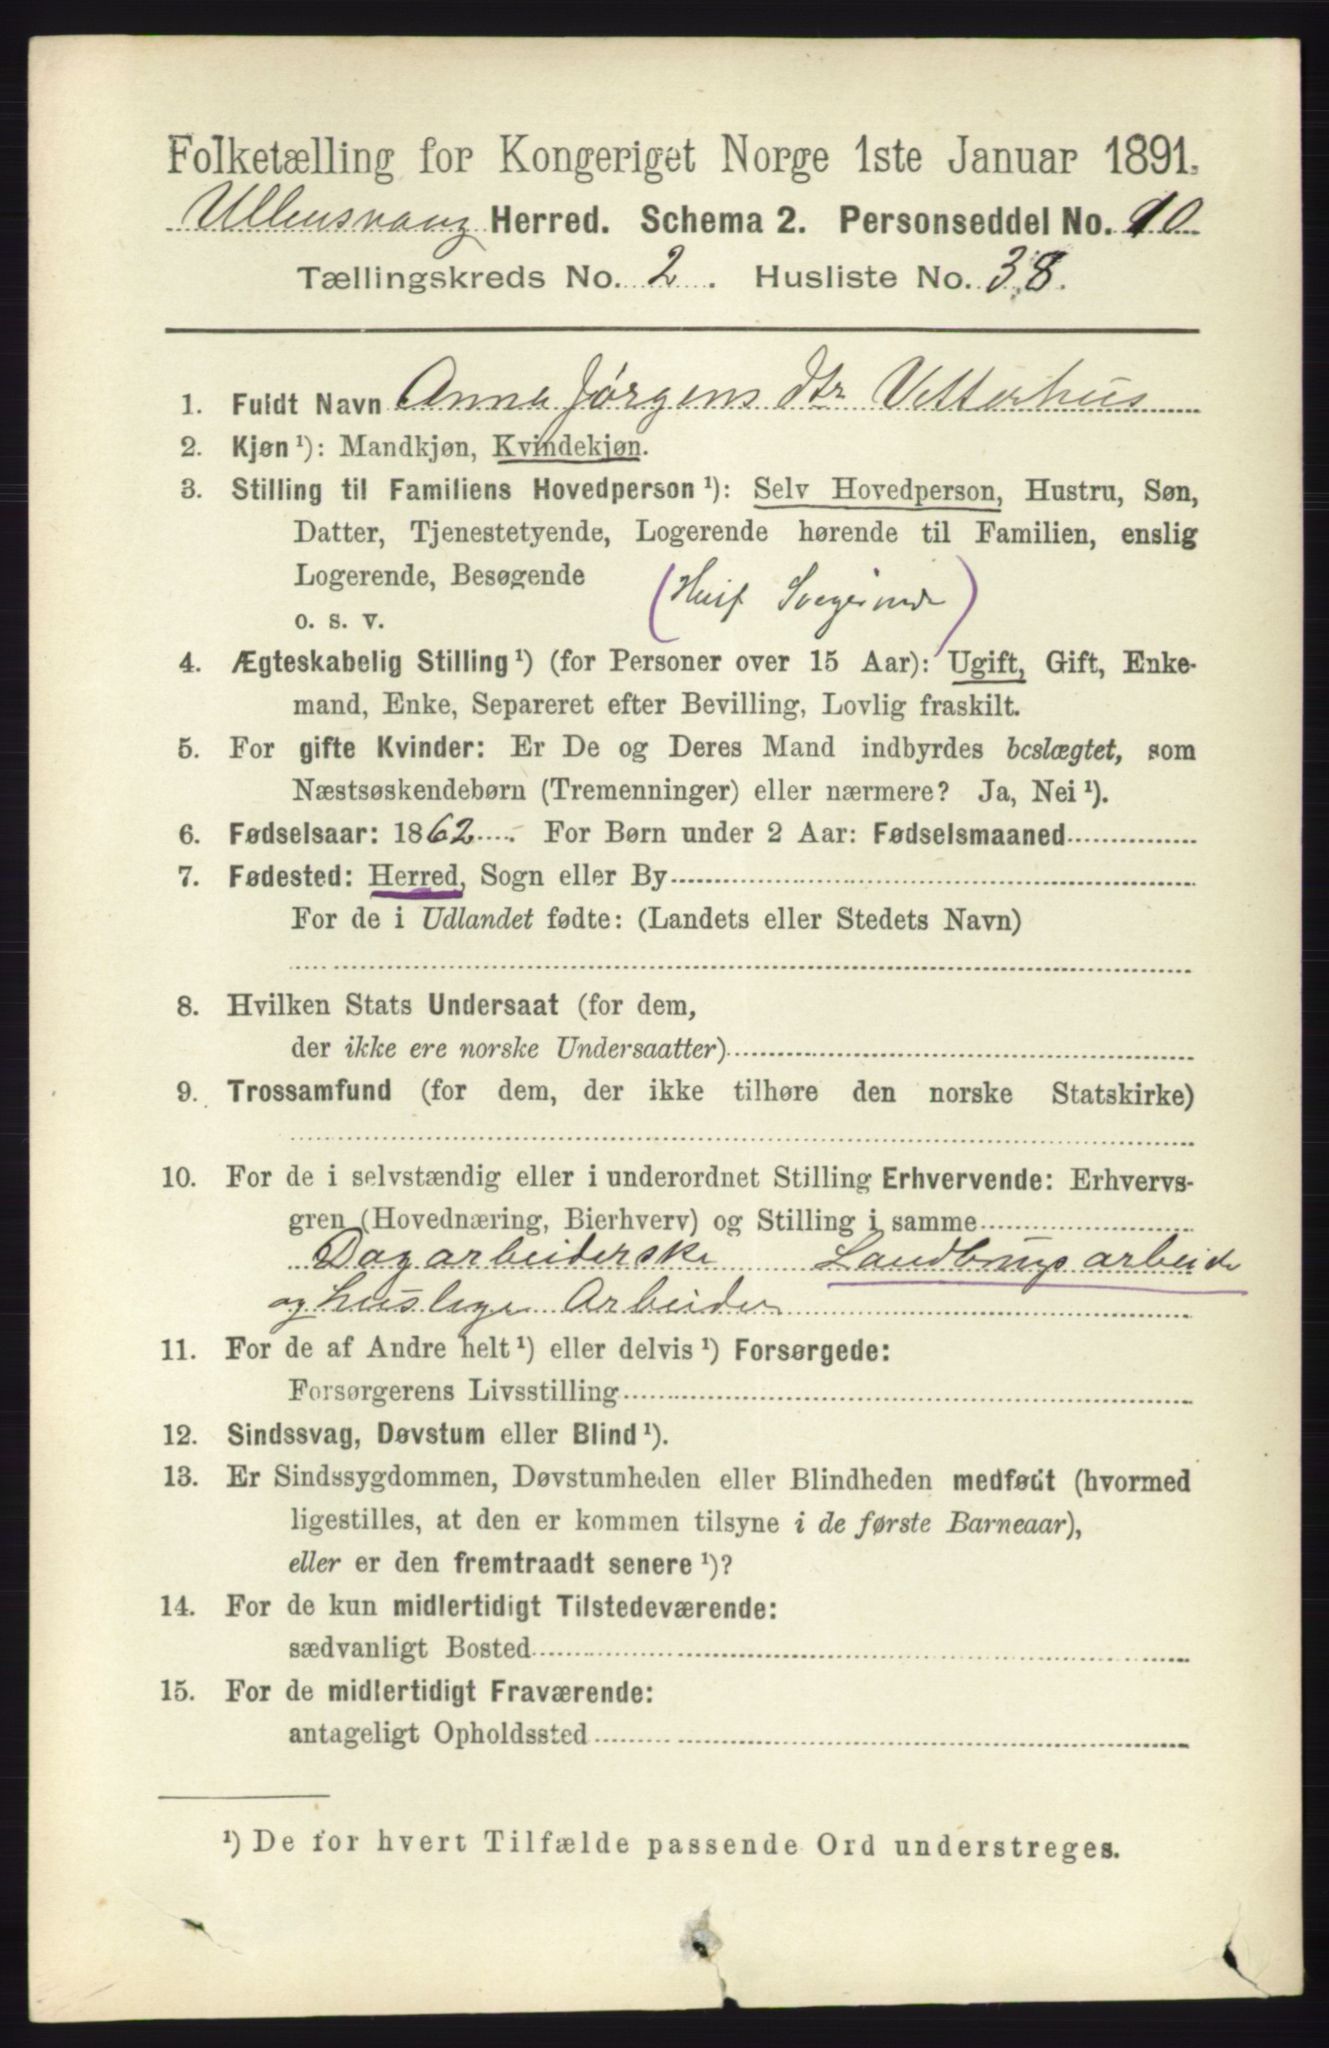 Folketælling for Kongeriget Norge 1ste Januar 1891.
Ullensvang Herred. Schema 2. Personseddel No. 10
Tællingskreds No. 2. Husliste No. 38.
1. Fuldt Navn Anna Jørgens dtr Vetterhus
2. Kjøn¹): Mandkjøn, Kvindekjøn.
3. Stilling til Familiens Hovedperson¹): Selv Hovedperson, Hustru, Søn,
Datter, Tjenestetyende, Logerende hørende til Familien, enslig
Logerende, Besøgende
o. s. v. (Husf Svegerinde)
4. Ægteskabelig Stilling¹) (for Personer over 15 Aar): Ugift, Gift, Enke-
mand, Enke, Separeret efter Bevilling, Lovlig fraskilt.
5. For gifte Kvinder: Er De og Deres Mand indbyrdes beslægtet, som
Næstsøskendebørn (Tremenninger) eller nærmere? Ja, Nei¹).
6. Fødselsaar: 1862. For Børn under 2 Aar: Fødselsmaaned
7. Fødested: Herred, Sogn eller By
For de i Udlandet fødte: (Landets eller Stedets Navn)
8. Hvilken Stats Undersaat (for dem,
der ikke ere norske Undersaatter)
9. Trossamfund (for dem, der ikke tilhøre den norske Statskirke)
10. For de i selvstændig eller i underordnet Stilling Erhvervende: Erhvervs-
gren (Hovednæring, Bierhverv) og Stilling i samme
Dagarbeiderske Landbrugsarbeide
og huslige Arbeider
11. For de af Andre helt¹) eller delvis¹) Forsørgede:
Forsørgerens Livsstilling
12. Sindssvag, Døvstum eller Blind¹).
13. Er Sindssygdommen, Døvstumheden eller Blindheden medfødt (hvormed
ligestilles, at den er kommen tilsyne i de første Barneaar),
eller er den fremtraadt senere¹)?
14. For de kun midlertidigt Tilstedeværende:
sædvanligt Bosted
15. For de midlertidigt Fraværende:
antageligt Opholdssted
¹) De for hvert Tilfælde passende Ord understreges.